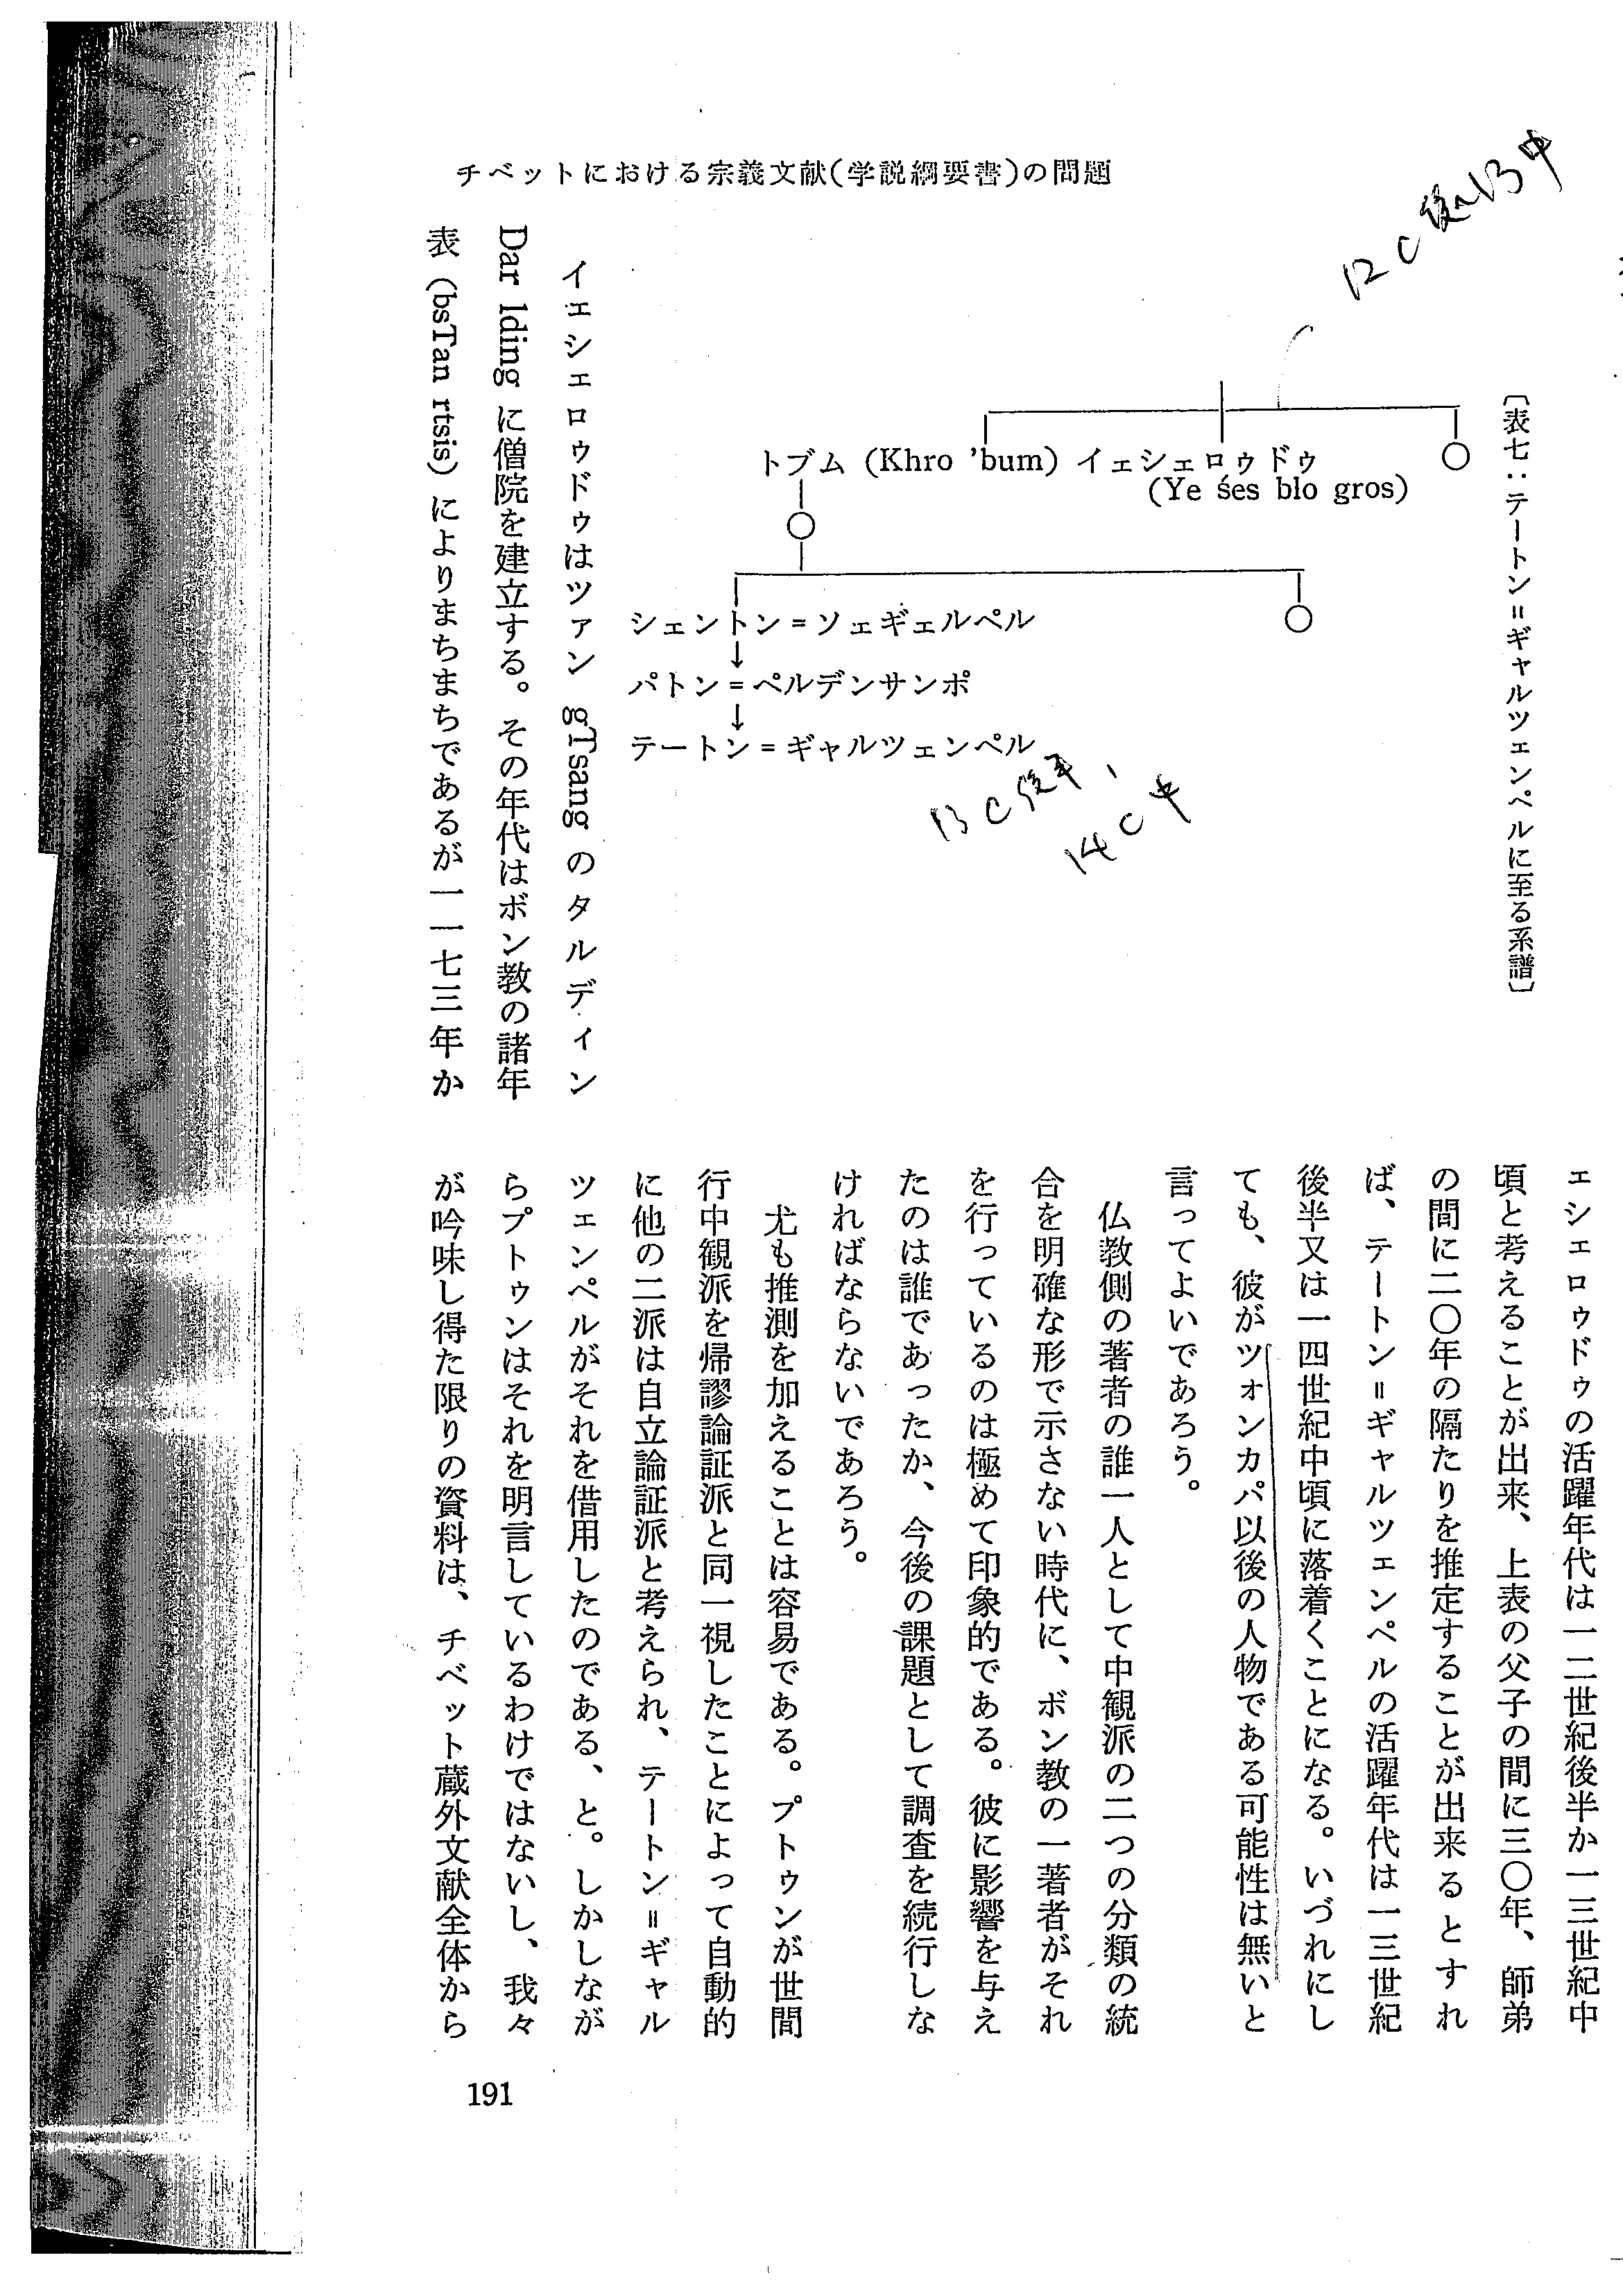 チベットにおける宗義文献(学説綱要書)の問題
〔表七：テートン＝ギャルツェンペルに至る系譜〕
12C後~13中
トブム (Khro 'bum) イェシェロゥドゥ
(Ye śes blo gros)
シェントン＝ソェギェルペル
↓
パトン＝ペルデンサンポ
↓
テートン＝ギャルツェンペル
13C後半、
14C中
イェシェロゥドゥはツァン gTsang のタルディン
Dar lding に僧院を建立する。その年代はボン教の諸年
表 (bsTan rtsis) によりまちまちであるが一一七三年か
ェシェロゥドゥの活躍年代は一二世紀後半か一三世紀中
頃と考えることが出来、上表の父子の間に三〇年、師弟
の間に二〇年の隔たりを推定することが出来るとすれ
ば、テートン＝ギャルツェンペルの活躍年代は一三世紀
後半又は一四世紀中頃に落着くことになる。いづれにし
ても、彼がツォンカパ以後の人物である可能性は無いと
言ってよいであろう。
仏教側の著者の誰一人として中観派の二つの分類の統
合を明確な形で示さない時代に、ボン教の一著者がそれ
を行っているのは極めて印象的である。彼に影響を与え
たのは誰であったか、今後の課題として調査を続行しな
ければならないであろう。
尤も推測を加えることは容易である。プトゥンが世間
行中観派を帰謬論証派と同一視したことによって自動的
に他の二派は自立論証派と考えられ、テートン＝ギャル
ツェンペルがそれを借用したのである、と。しかしなが
らプトゥンはそれを明言しているわけではないし、我々
が吟味し得た限りの資料は、チベット蔵外文献全体から
191